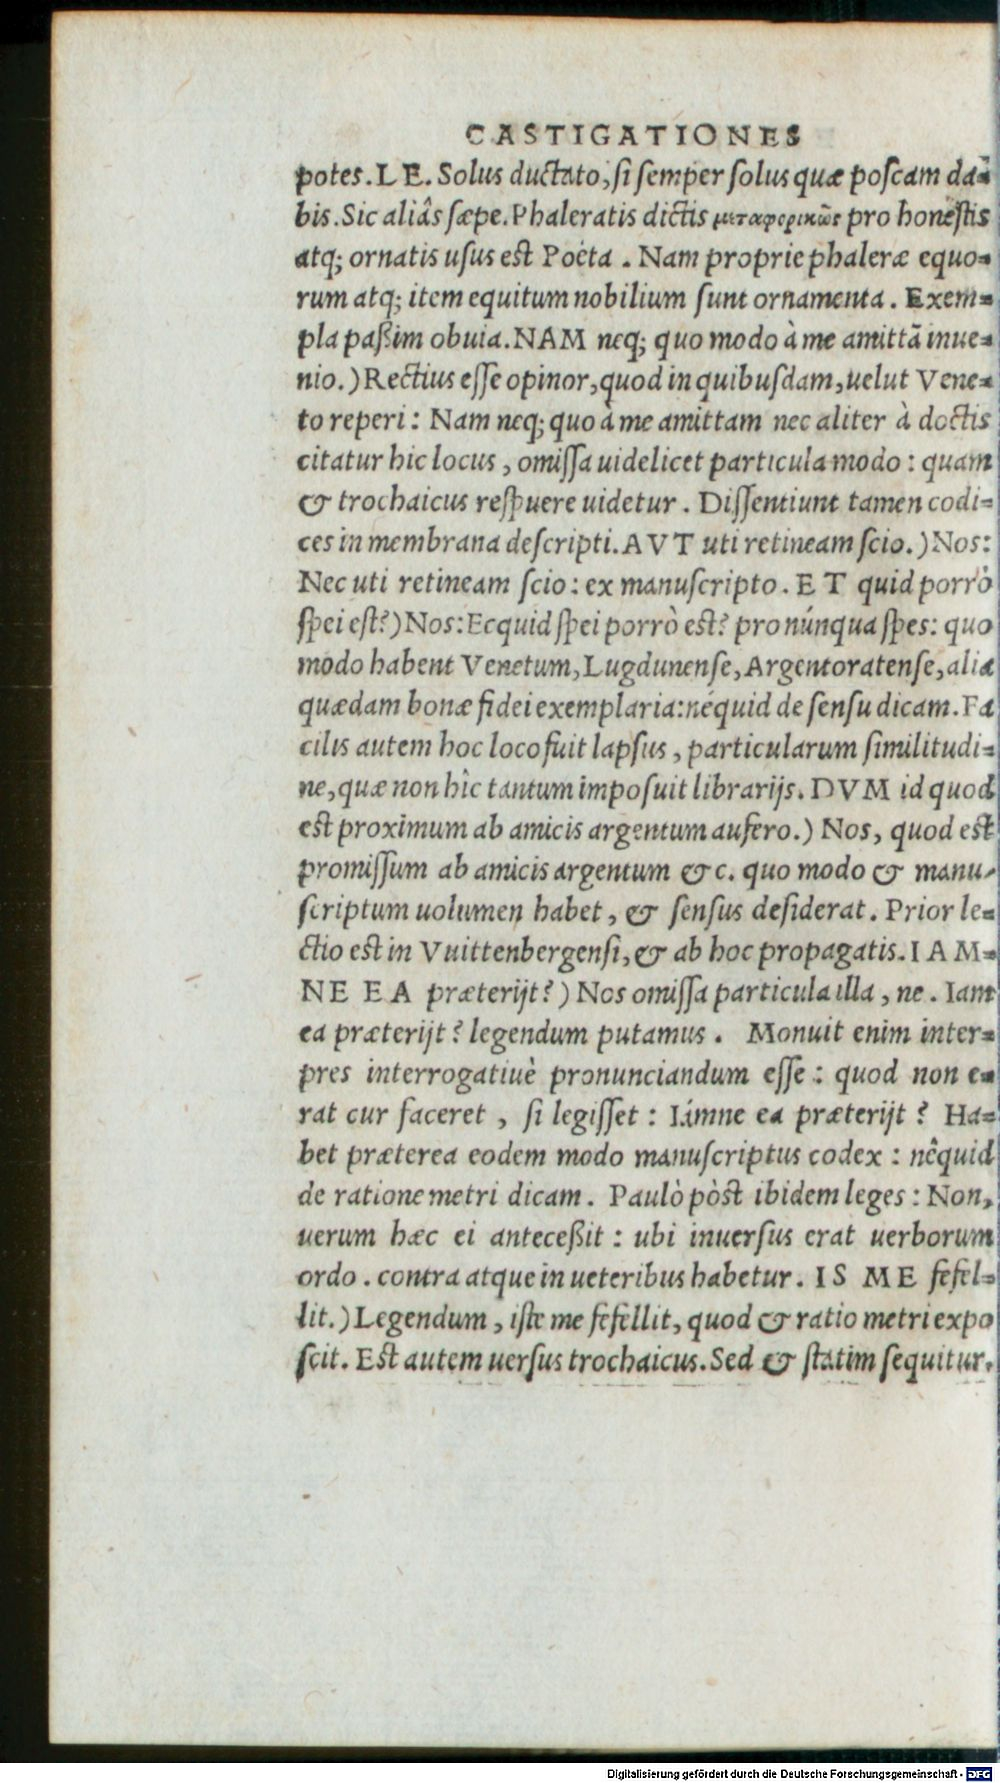 CASTIGATIONES
potes. L E. Solus ductato, si semper solus quæ poscam da=
bis. Sic aliâs sæpe. Phaleratis dictis μεταφορικῶς pro honestis
atq; ornatis usus est Poëta. Nam proprie phaleræ equo=
rum atq; item equitum nobilium sunt ornamenta. Exem=
pla paßim obuia. NAM neq; quo modo à me amittã inue=
nio.) Rectius esse opinor, quod in quibusdam, uelut Vene=
to reperi: Nam neq; quo à me amittam nec aliter à doctis
citatur hic locus, omissa uidelicet particula modo: quam
& trochaicus respuere uidetur. Dissentiunt tamen codi=
ces in membrana descripti. AVT uti retineam scio.) Nos:
Nec uti retineam scio: ex manuscripto. E T quid porrò
spei est?) Nos: Ecquid spei porrò est? pro núnqua spes: quo
modo habent Venetum, Lugdunense, Argentoratense, alia
quædam bonæ fidei exemplaria: néquid de sensu dicam. Fa
cilis autem hoc loco fuit lapsus, particularum similitudi=
ne, quæ non hîc tantum imposuit librarijs. DVM id quod
est proximum ab amicis argentum aufero.) Nos, quod est
promissum ab amicis argentum & c. quo modo & manu-
scriptum uolumen habet, & sensus desiderat. Prior le=
ctio est in Vuittenbergensi, & ab hoc propagatis. I A M=
NE E A præterijt?) Nos omissa particula illa, ne. Iam
ea præterijt? legendum putamus. Monuit enim inter=
pres interrogatiuè pronunciandum esse: quod non e=
rat cur faceret, si legisset: Iámne ea præterijt? Ha=
bet præterea eodem modo manuscriptus codex: nêquid
de ratione metri dicam. Paulò pòst ibidem leges: Non,
uerum hæc ei anteceßit: ubi inuersus erat uerborum
ordo. contra atque in ueteribus habetur. I S M E fefel=
lit.) Legendum, iste me fefellit, quod & ratio metri expo
scit. Est autem uersus trochaicus. Sed & statim sequitur,
Digitalisierung gefördert durch die Deutsche Forschungsgemeinschaft - DFG